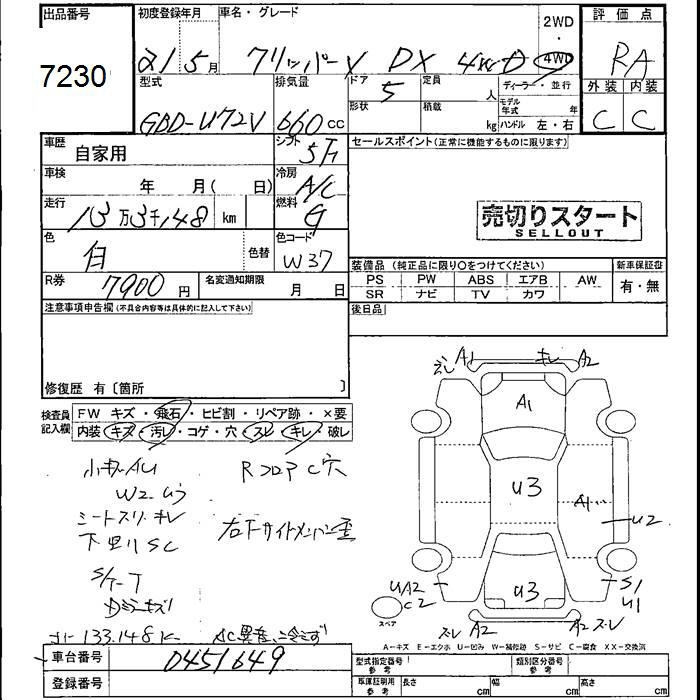 出品番号
7230
初度登録年月
21 5月
車名・グレード
クリッパーV DX 4WD
2WD
・
4WD
評価点
RA
外装 内装
C C
型式
GBD-U72V
排気量
660 cc
ドア
5
形状
定員
人
積載
kg
ディーラー・並行
モデル年式 年
ハンドル 左・右
車歴
自家用
シフト
5F
セールスポイント(正常に機能するものに限ります)
車検
年 月( 日)
冷房
A/C
走行
13万3千148 km
燃料
G
売切りスタート
SELLOUT
色
白
色替
色コード
W37
R券
7900 円
名変通知期限
月 日
装備品 (純正品に限り〇をつけてください)
新車保証書
PS PW ABS エアB AW
SR ナビ TV カワ
有・無
後日品
注意事項申告欄(不具合内容等は具体的に記入して下さい)
修復歴 有〔箇所 〕
検査員記入欄
FW キズ・飛石・ヒビ割・リペア跡・×要
内装 キズ・汚レ・コゲ・穴・スレ・キレ・破レ
小キズAU
Rフロア C穴
シートスリ・キレ
右下サイドメンバー歪
下回りSC
S/T-T
Dミラーキズ
133.148K
AC異音、冷えず
A1 キレ A2
A1
U3
A1
U2
U3
UA2
C2
S1
U1
スレ A2
A2 スレ
スペア
A-キズ E-エクボ U-凹み W-補修跡 S-サビ C-腐食 XX-交換済
車台番号
0451649
登録番号
型式指定番号
参考
類別区分番号
参考
車庫証明用
参考
長さ cm
幅 cm
高さ cm